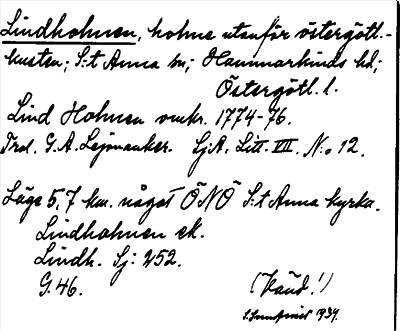 Lindholmen, holme utanför östergötl.-
kusten; S:t Anna sn; Hammarkinds hd;
Östergötl. l.
Lind Holmen omkr. 1774-76.
Trol. G. A. Lejonanker. SjA. Litt. VII. N:o 12.
Läge 5,7 km. något ÖNÖ S:t Anna kyrka.
Lindholmen ek.
Lindh. Sj: 252.
G. 46.
(Känd!)
1939.